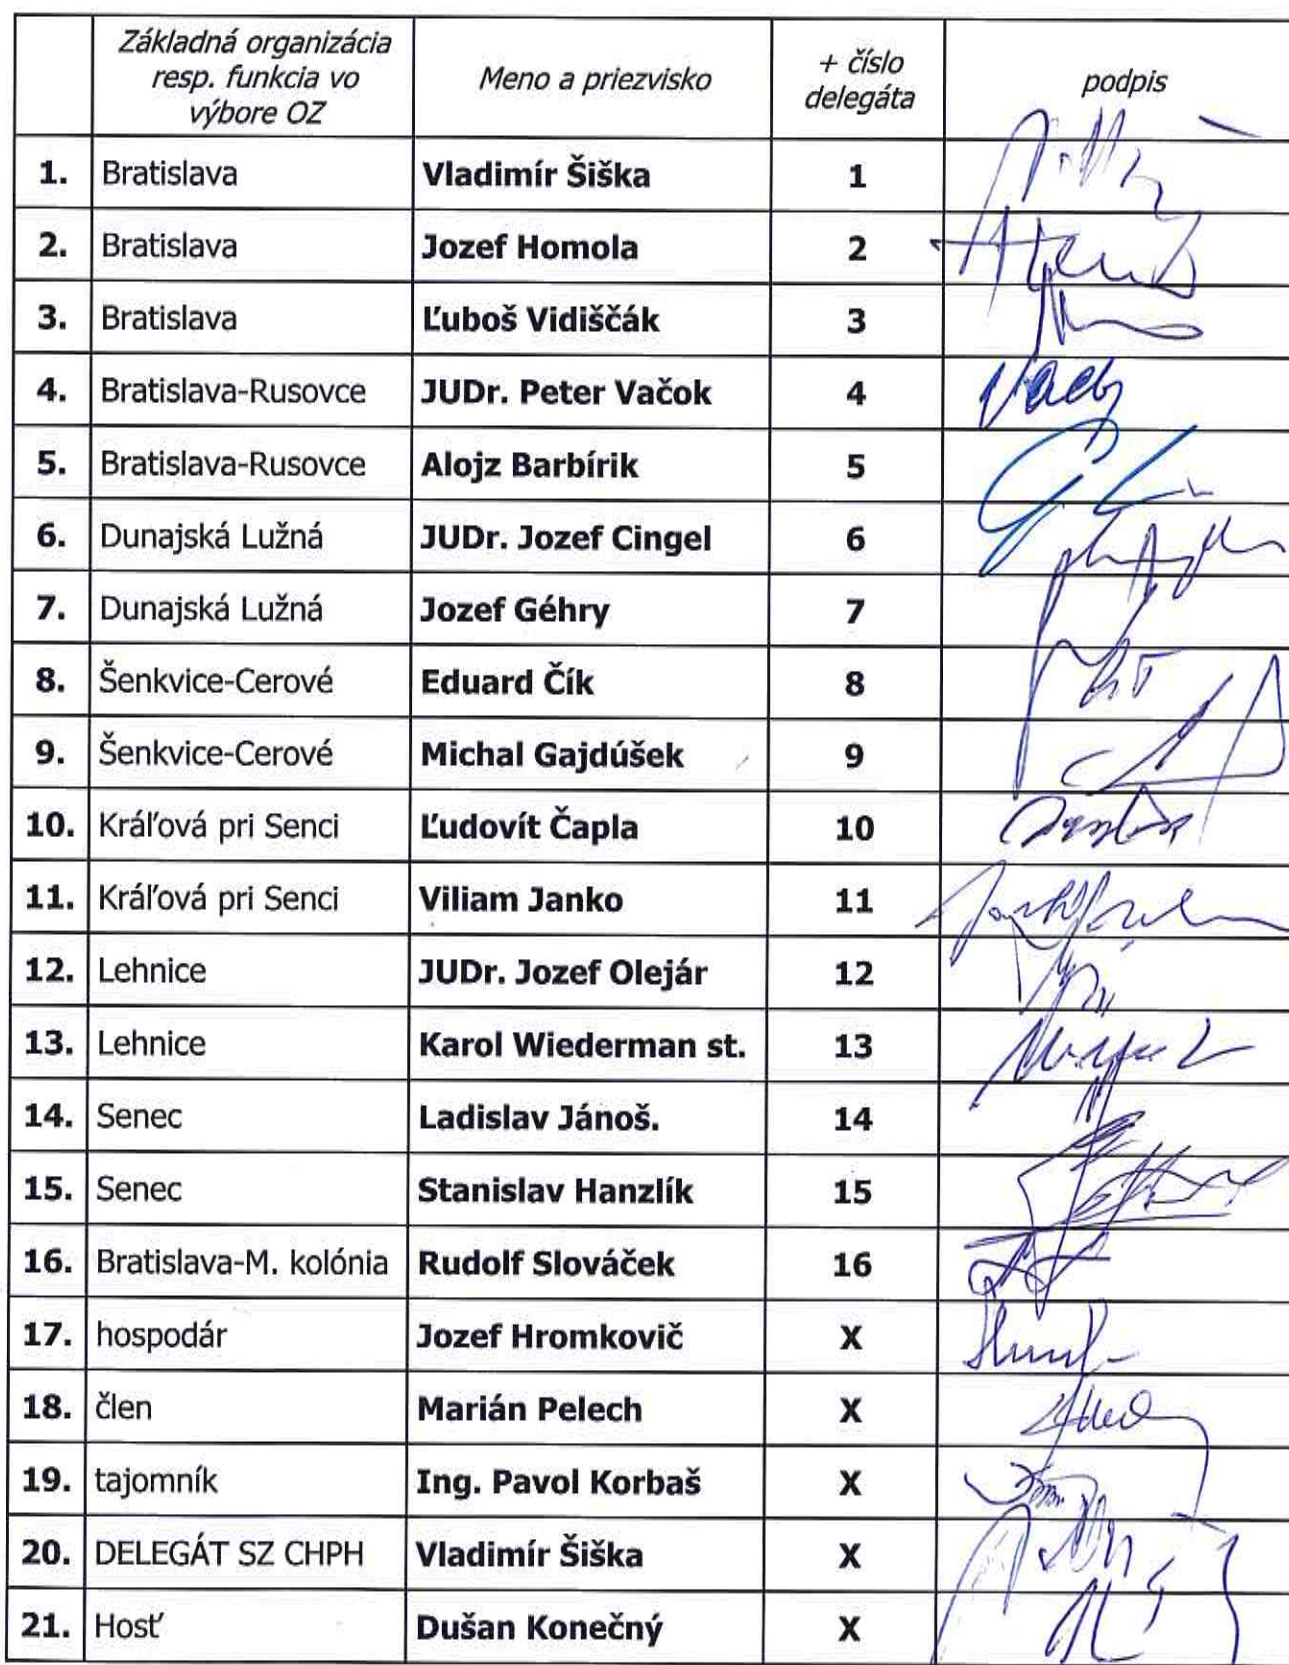 Základná organizácia
resp. funkcia vo
výbore OZ
Meno a priezvisko
+ číslo
delegáta
podpis
1. Bratislava Vladimír Šiška 1
2. Bratislava Jozef Homola 2
3. Bratislava Ľuboš Vidiščák 3
4. Bratislava-Rusovce JUDr. Peter Vačok 4
5. Bratislava-Rusovce Alojz Barbírik 5
6. Dunajská Lužná JUDr. Jozef Cingel 6
7. Dunajská Lužná Jozef Géhry 7
8. Šenkvice-Cerové Eduard Čík 8
9. Šenkvice-Cerové Michal Gajdúšek 9
10. Kráľová pri Senci Ľudovít Čapla 10
11. Kráľová pri Senci Viliam Janko 11
12. Lehnice JUDr. Jozef Olejár 12
13. Lehnice Karol Wiederman st. 13
14. Senec Ladislav Jánoš. 14
15. Senec Stanislav Hanzlík 15
16. Bratislava-M. kolónia Rudolf Slováček 16
17. hospodár Jozef Hromkovič X
18. člen Marián Pelech X
19. tajomník Ing. Pavol Korbaš X
20. DELEGÁT SZ CHPH Vladimír Šiška X
21. Hosť Dušan Konečný X